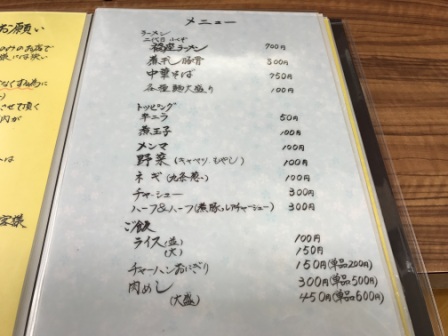 お願い
メニュー
ラーメン
ラーメン 700円
煮干し豚骨 800円
中華そば 750円
各種麺大盛り 100円
トッピング
辛ニラ 50円
煮玉子 100円
メンマ 100円
野菜(キャベツもやし) 100円
ネギ(九条葱) 100円
チャーシュー 300円
ハーフ&ハーフ(煮豚、レアチャーシュー) 300円
ご飯
ライス(並) 100円
(大) 150円
チャーハンおにぎり 150円(単品200円)
肉めし 300円(単品500円)
(大盛) 450円(単品600円)